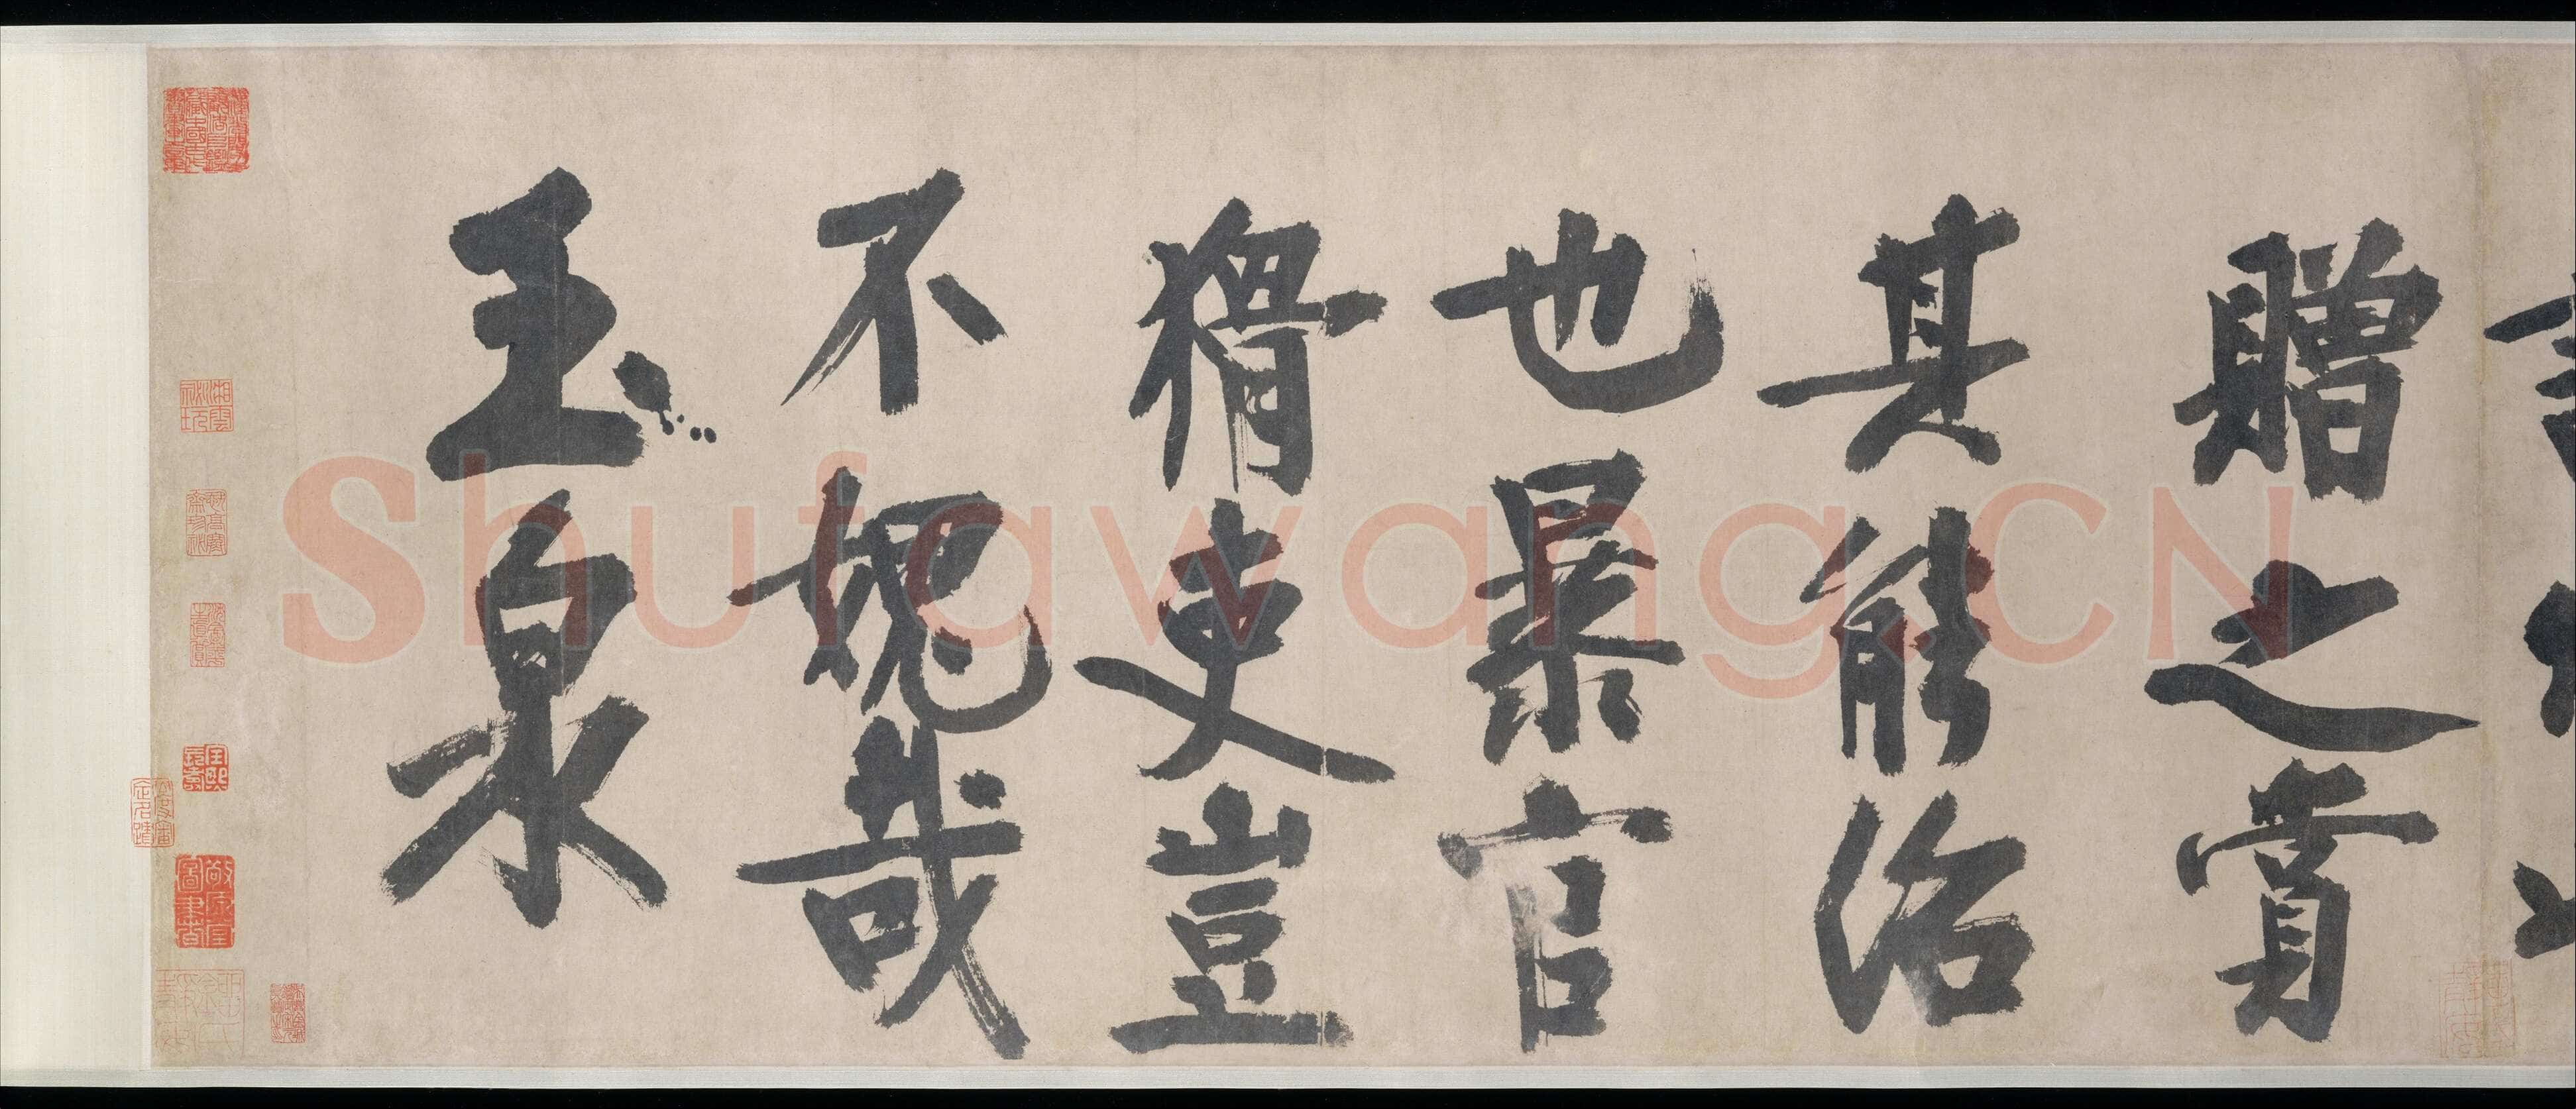 贈之賞
其能治
也暴官
猾吏豈
不媿哉
玉泉
Shufawang.CN